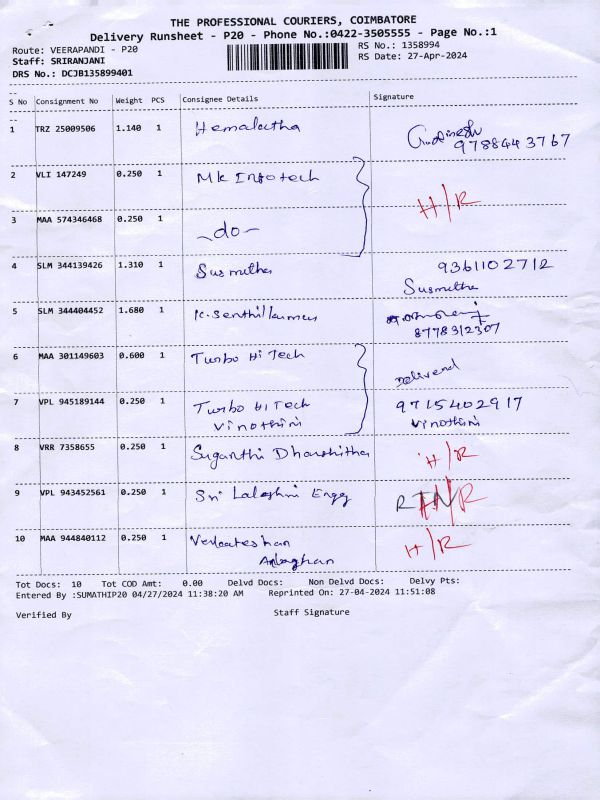 THE PROFESSIONAL COURIERS, COIMBATORE
Delivery Runsheet - P20 - Phone No.:0422-3505555 - Page No.:1
Route: VEERAPANDI - P20
RS No.: 1358994
Staff: SRIRANJANI
RS Date: 27-Apr-2024
DRS No.: DCJB135899401
S No Consignment No Weight PCS Consignee Details Signature
1 TRZ 25009506 1.140 1 Hemalatha
9788443767
2 VLI 147249 0.250 1 Mk Infotech
H/R
3 MAA 574346468 0.250 1 -do-
4 SLM 344139426 1.310 1 Susmitha 9361102712
Susmitha
5 SLM 344404452 1.680 1 K. Senthilkumar
8778312307
6 MAA 301149603 0.600 1 Turbo Hi Tech
Deliverd
7 VPL 945189144 0.250 1 Turbo Hi Tech 9715402917
Vinothini Vinothini
8 VRR 7358655 0.250 1 Suganthi Dharshitha H/R
9 VPL 943452561 0.250 1 Sri Lakshmi Engg RTN H/R
10 MAA 944840112 0.250 1 Venkateshan H/R
Tot Docs: 10 Tot COD Amt: 0.00 Delvd Docs: Non Delvd Docs: Delvy Pts:
Entered By :SUMATHIP20 04/27/2024 11:38:20 AM Reprinted On: 27-04-2024 11:51:08
Verified By Staff Signature